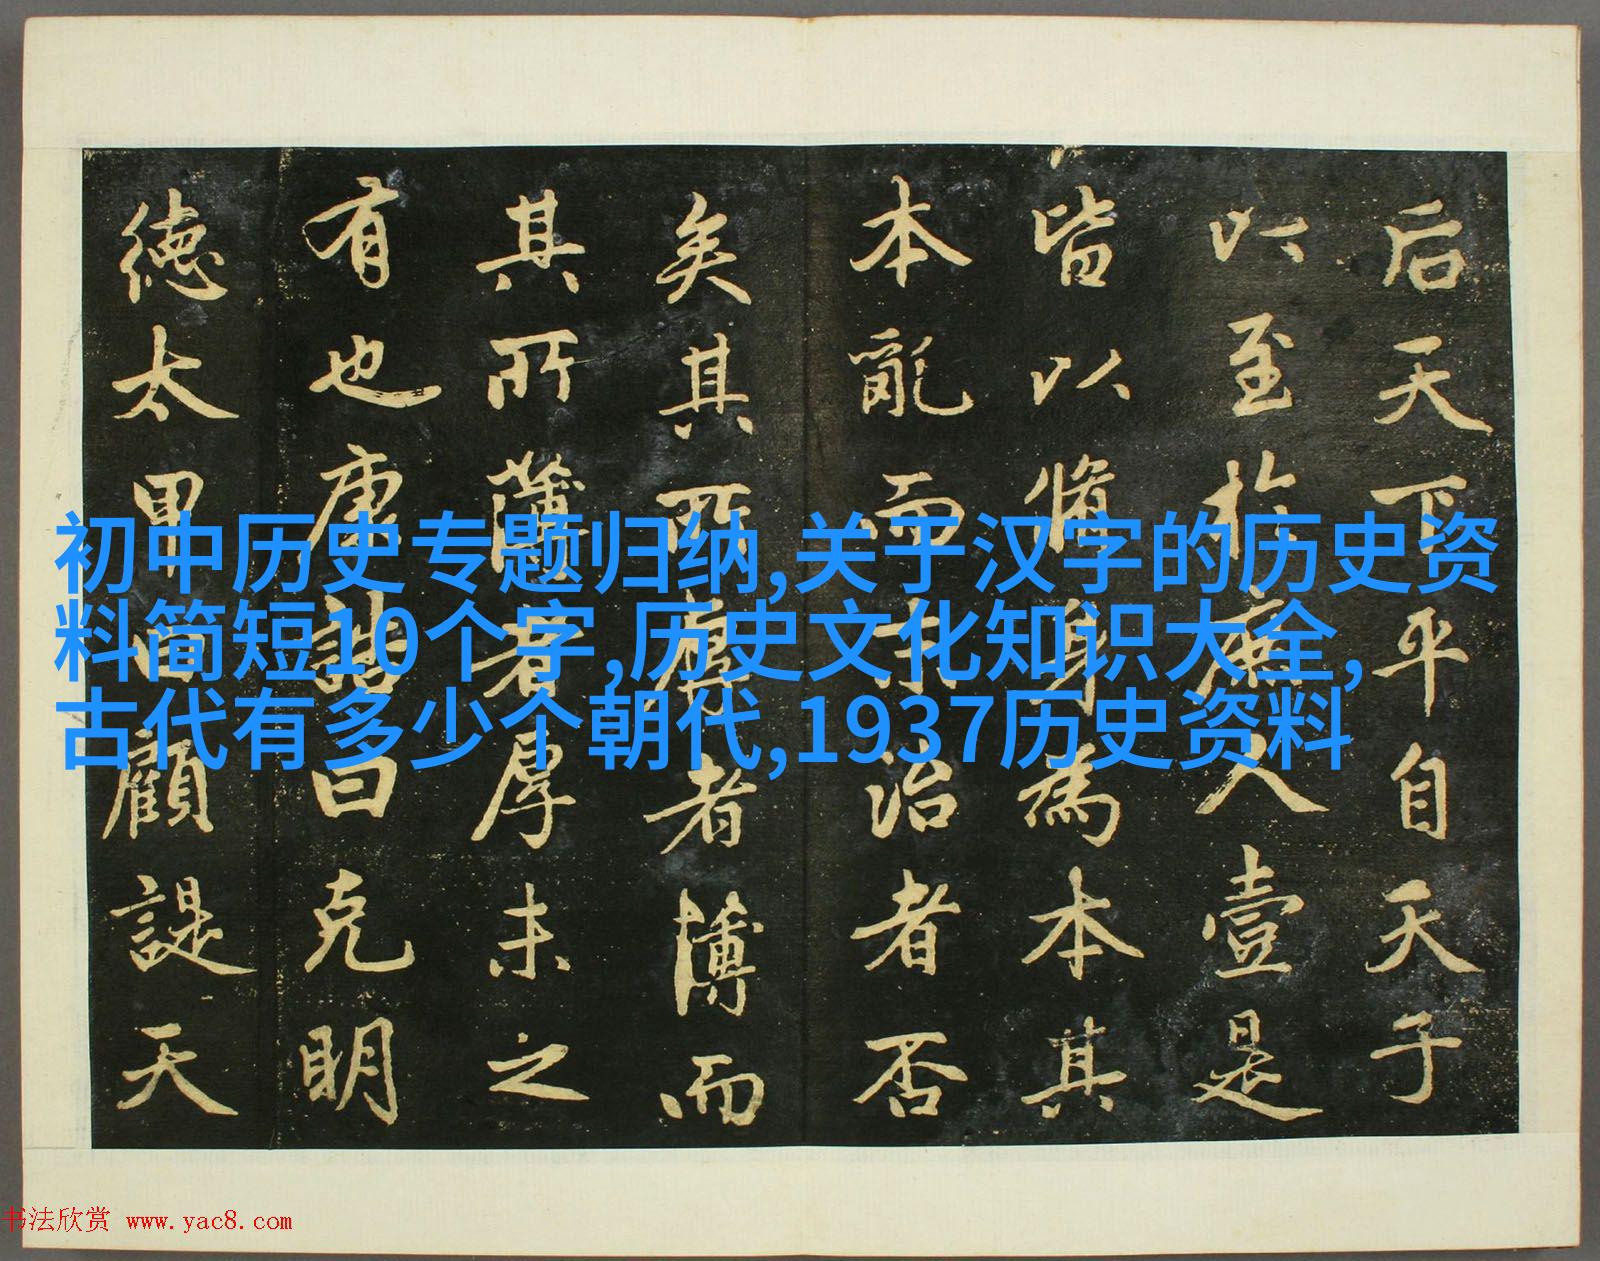 后天下平自天子
以至於庶人壹是
皆以脩身為本其
本亂而末治者否
矣其所厚者薄而
其所薄者厚未之
有也康誥曰克明
德太甲曰顧諟天
初中历史专题归纳,关于汉字的历史资
料简短10个字,历史文化知识大全,
古代有多少个朝代,1937历史资料
书法欣赏 www.yac8.com